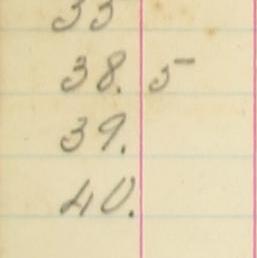 35
38. 5
39.
40.